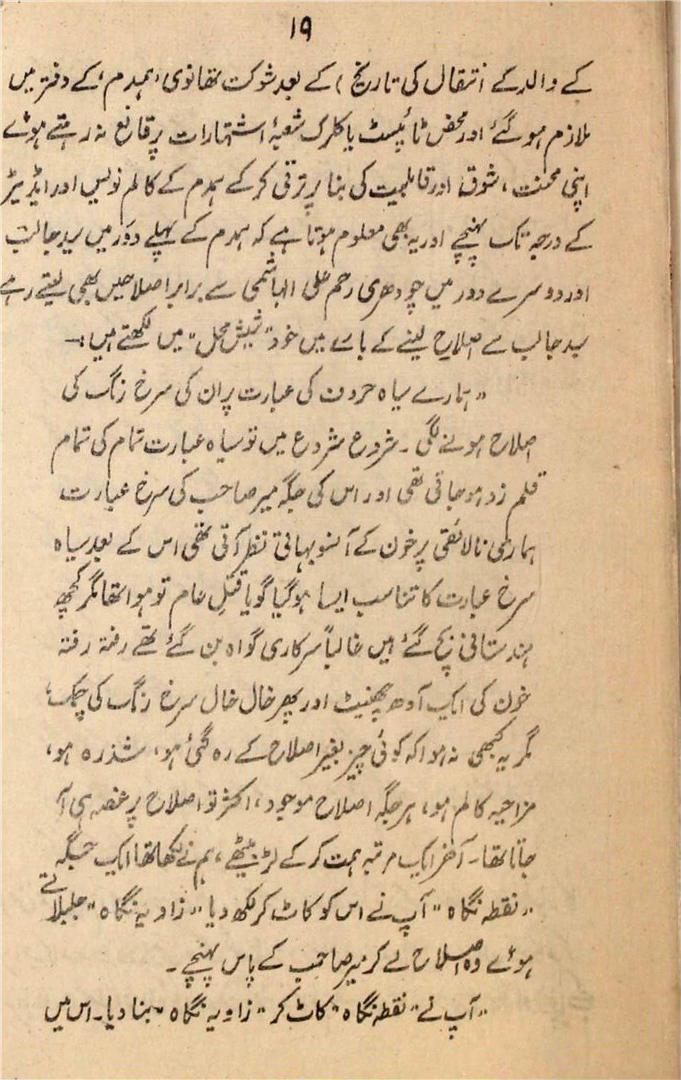 ۱۹
کے والد کے انتقال کی تاریخ) کے بعد شوکت تھانوی 'ہمدم' کے دفتر میں
ملازم ہو گئے اور محض ٹائپسٹ یا کلرک شعبۂ اشتہارات پر قانع نہ رہتے ہوئے
اپنی محنت، شوق اور قابلیت کی بنا پر ترقی کر کے ہمدم کے کالم نویس اور ایڈیٹر
کے درجہ تک پہنچے اور یہ بھی معلوم ہوتا ہے کہ ہمدم کے پہلے دَور میں سید جالب
اور دوسرے دور میں چودھری رحم علی الہاشمی سے برابر اصلاحیں بھی لیتے رہے
سید جالب سے اصلاح لینے کے بارے میں خود "شیش محل" میں لکھتے ہیں:۔
"ہمارے سیاہ حروف کی عبارت پر ان کی سرخ رنگ کی
اصلاح ہونے لگی۔ شروع شروع میں تو سیاہ عبارت تمام کی تمام
قلم زد ہو جاتی تھی اور اس کی جگہ میر صاحب کی سرخ عبارت
ہماری نالائقی پر خون کے آنسو بہاتی نظر آتی تھی اس کے بعد سیاہ
سرخ عبارت کا تناسب ایسا ہو گیا گویا قتلِ عام تو ہوا تھا مگر کچھ
ہندستانی بچ گئے ہیں غالباً سرکاری گواہ بن گئے تھے رفتہ رفتہ
خون کی ایک آدھ چھینٹ اور پھر خال خال سرخ رنگ کی چمک،
مگر یہ کبھی نہ ہوا کہ کوئی چیز بغیر اصلاح کے رہ گئی ہو، شذرہ ہو،
مزاحیہ کالم ہو، ہر جگہ اصلاح موجود، اکثر تو اصلاح پر غصہ ہی آ
جاتا تھا۔ آخر ایک مرتبہ ہمت کر کے لڑ بیٹھے، ہم نے لکھا تھا ایک جگہ
"نقطہ نگاہ" آپ نے اس کو کاٹ کر لکھ دیا "زاویہ نگاہ" جلبلاتے
ہوئے وہ اصلاح لے کر میر صاحب کے پاس پہنچے۔
"آپ نے "نقطہ نگاہ" کاٹ کر "زاویہ نگاہ" بنا دیا۔ اس میں